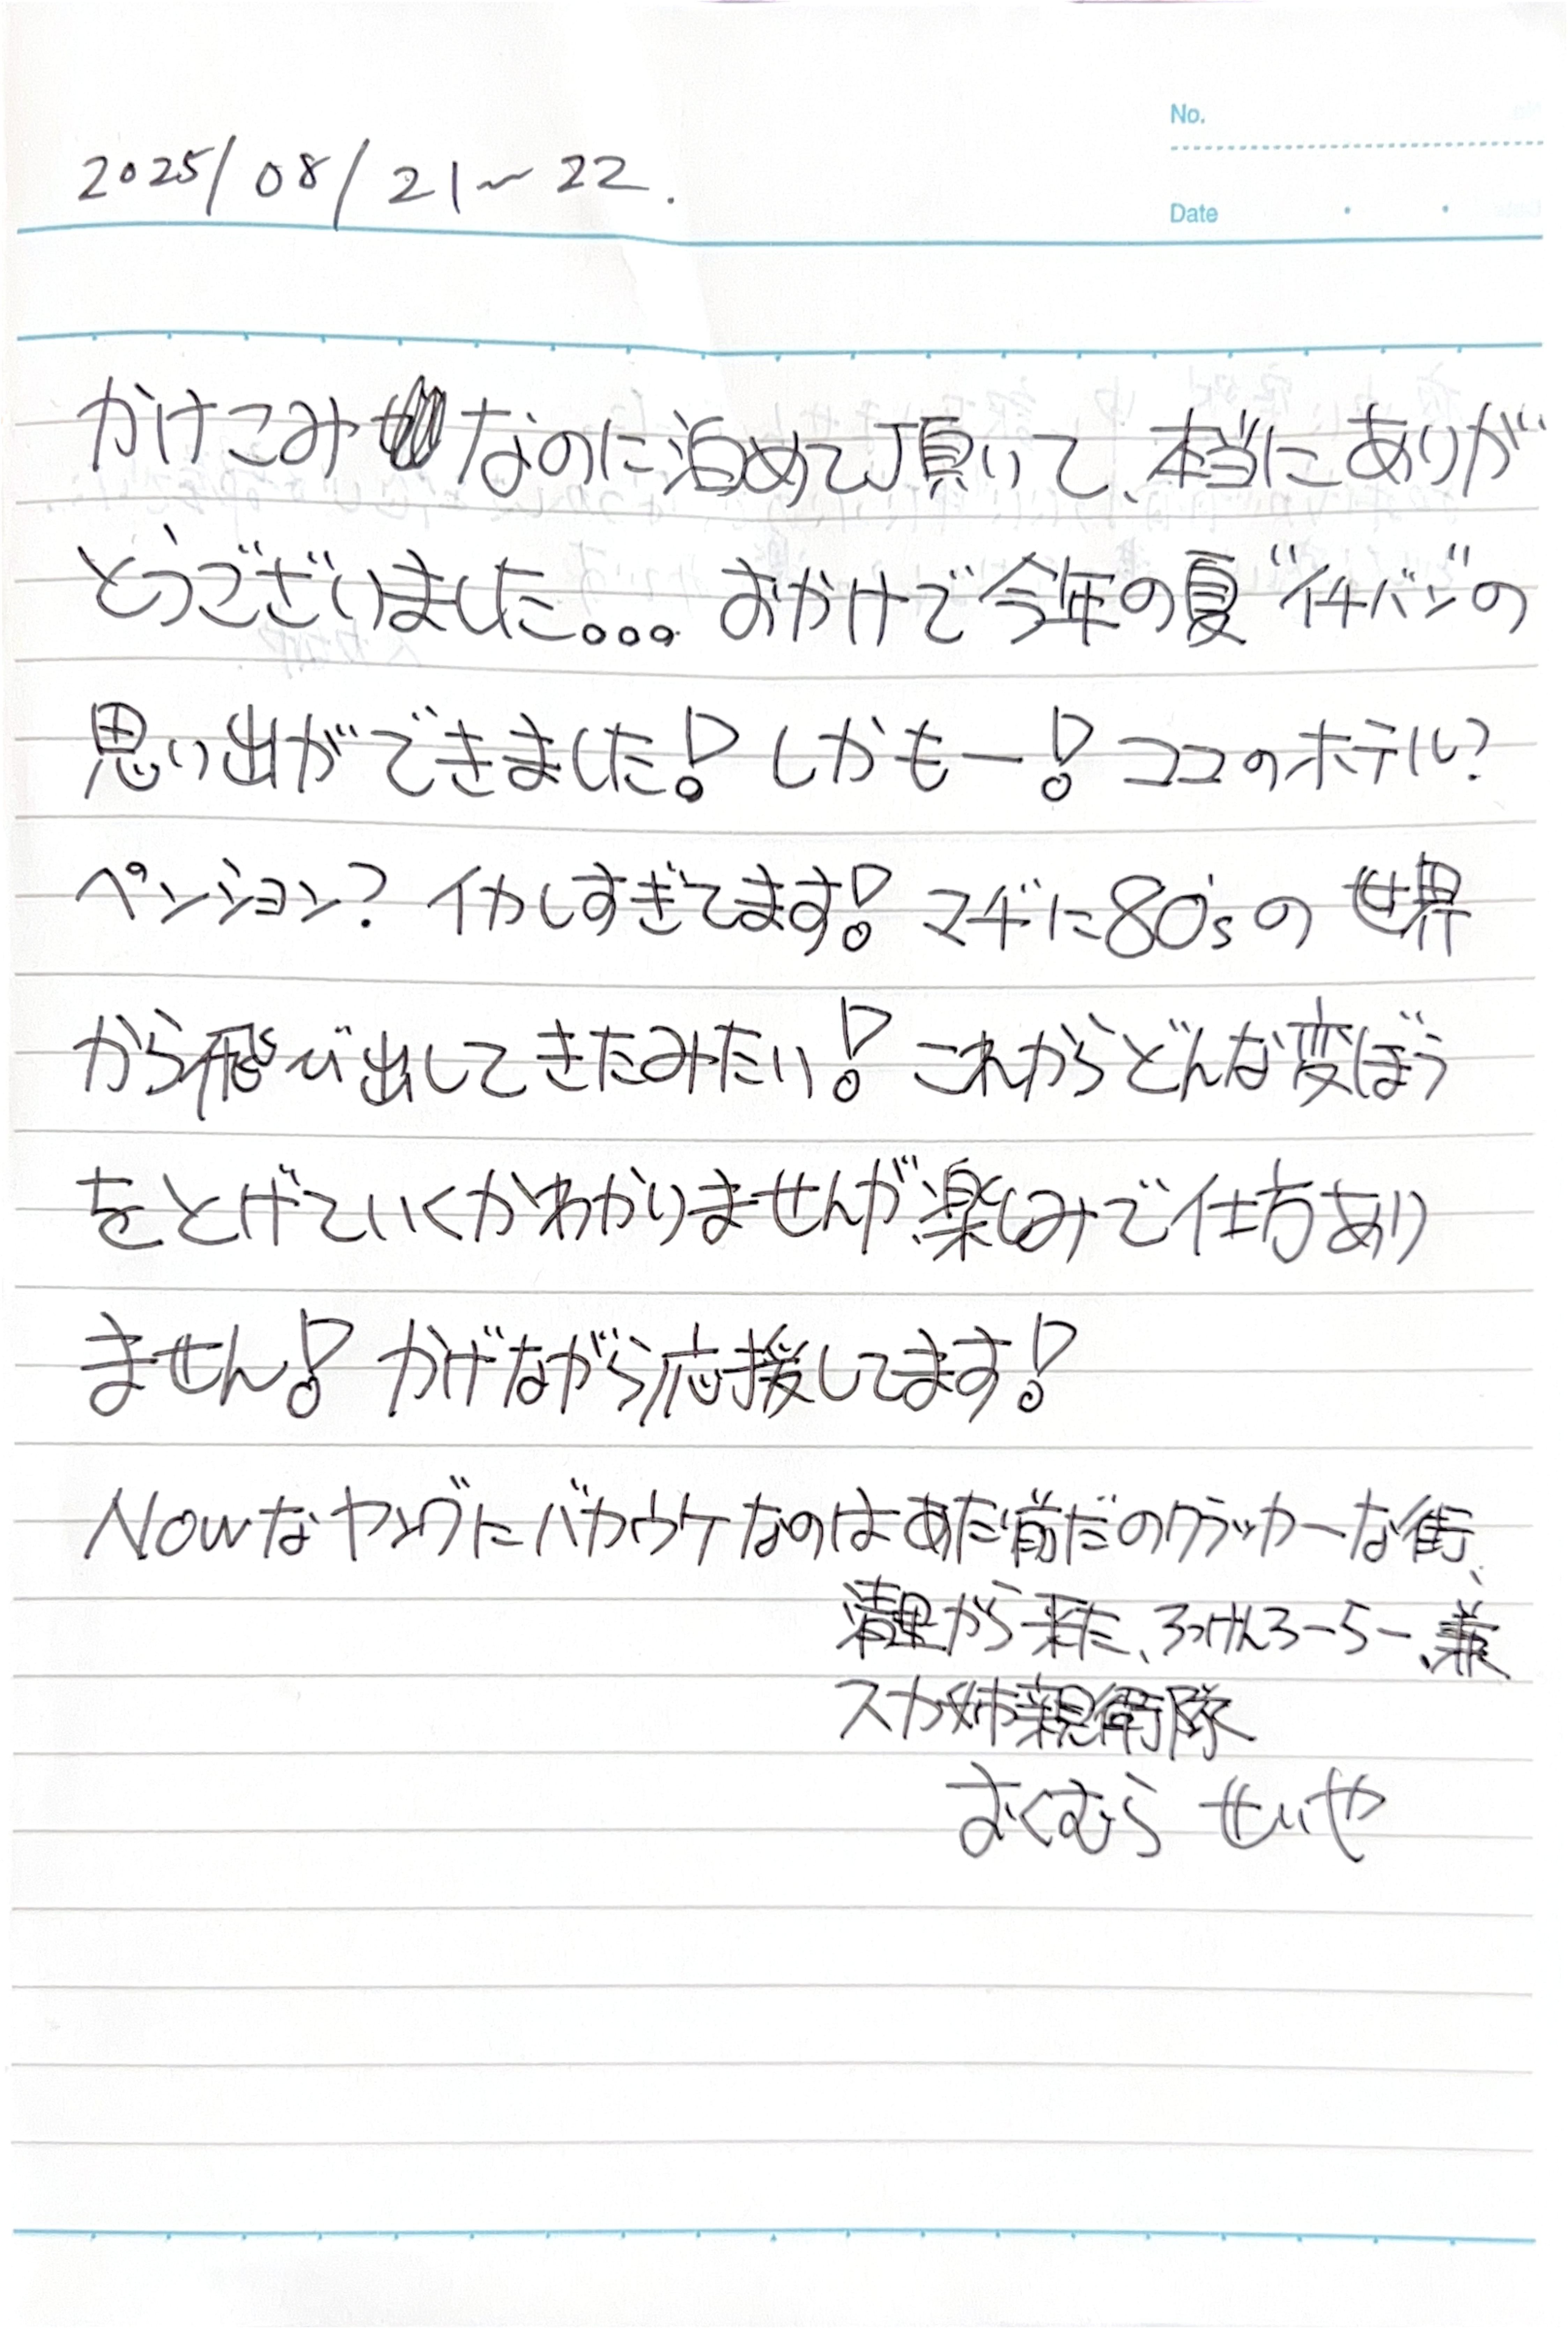 No.
2025/08/21～22.
Date
かけこみなのに泊めて頂いて、本当にありが
とうございました。。。おかげで今年の夏"イチバン"の
思い出ができました！しかもー！ココのホテル？
ペンション？イカしすぎてます！マヂに80'sの世界
から飛び出してきたみたい！これからどんな変ぼう
をとげていくかわかりませんが、楽しみで仕方あり
ません！かげながら応援してます！
Nowなヤングにバカウケなのはあた前だのクラッカーな街、
清里から来た、ろっけんろーらー、兼
スカ姉親衛隊
おくむら せいや